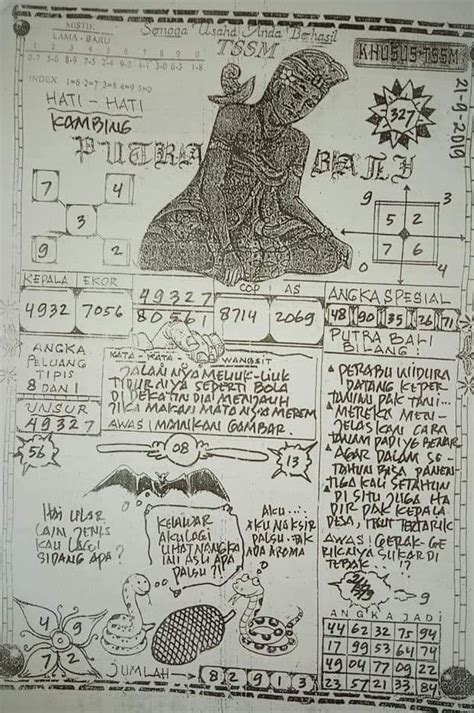 MISTIK
LAMA - BARU
Semoga Usaha Anda Berhasil
TSSM
KHUSUS-TSSM
1 2 3 4 5 6 7 8 9 0
INDEX 1=6 2=7 3=8 4=9 5=0
21-9-2019
HATI - HATI
KAMBING
327
PUTRA BALI
7 4
3
9 2
9 3
5 2
7 6
0 4
KEPALA EKOR
4932 7056
49327
80561
COP AS
8714 2069
ANGKA SPESIAL
48 90 35 26 71
PUTRA BALI
BILANG :
ANGKA
PELUANG
TIPIS
8 DAN 1
UNSUR
49327
KATA - KATA - WANGSIT
JALANNYA MELIUK-LIUK
TIDURNYA SEPERTI BOLA
DI DEKATIN DIA MENJAUH
JIKA MAKAN MATANYA MEREM
AWAS! MAINKAN GAMBAR.
PRABU WIDURA
DATANG KEPER
TANIAN PAK TANI...
MEREKA MEN-
JELASKAN CARA
TANAM PADI YG BENAR
AGAR DALAM SE-
TAHUN BISA PANEN
TIGA KALI SETAHUN
DI SITU JUGA HA
DIR PAK KEPALA
DESA, IKUT TERTARIK
AWAS! GERAK-GE
RIKNYA SUKAR DI
TEBAK...!?
56
08
13
HAI ULAR
LAIN JENIS
KAU LAGI
SIDANG APA?
KELAWAR
AKU LAGI
LIHAT NANGKA
INI ASLI APA
PALSU ?!!
AKU...
AKU NAKSIR
PALSU. TAK
ADA AROMA
9
4 9
7 2
JUMLAH
8 2 9 1 3
ANGKA JADI
44 62 32 75 94
17 99 53 64 74
49 04 77 09 22
23 57 21 33 84